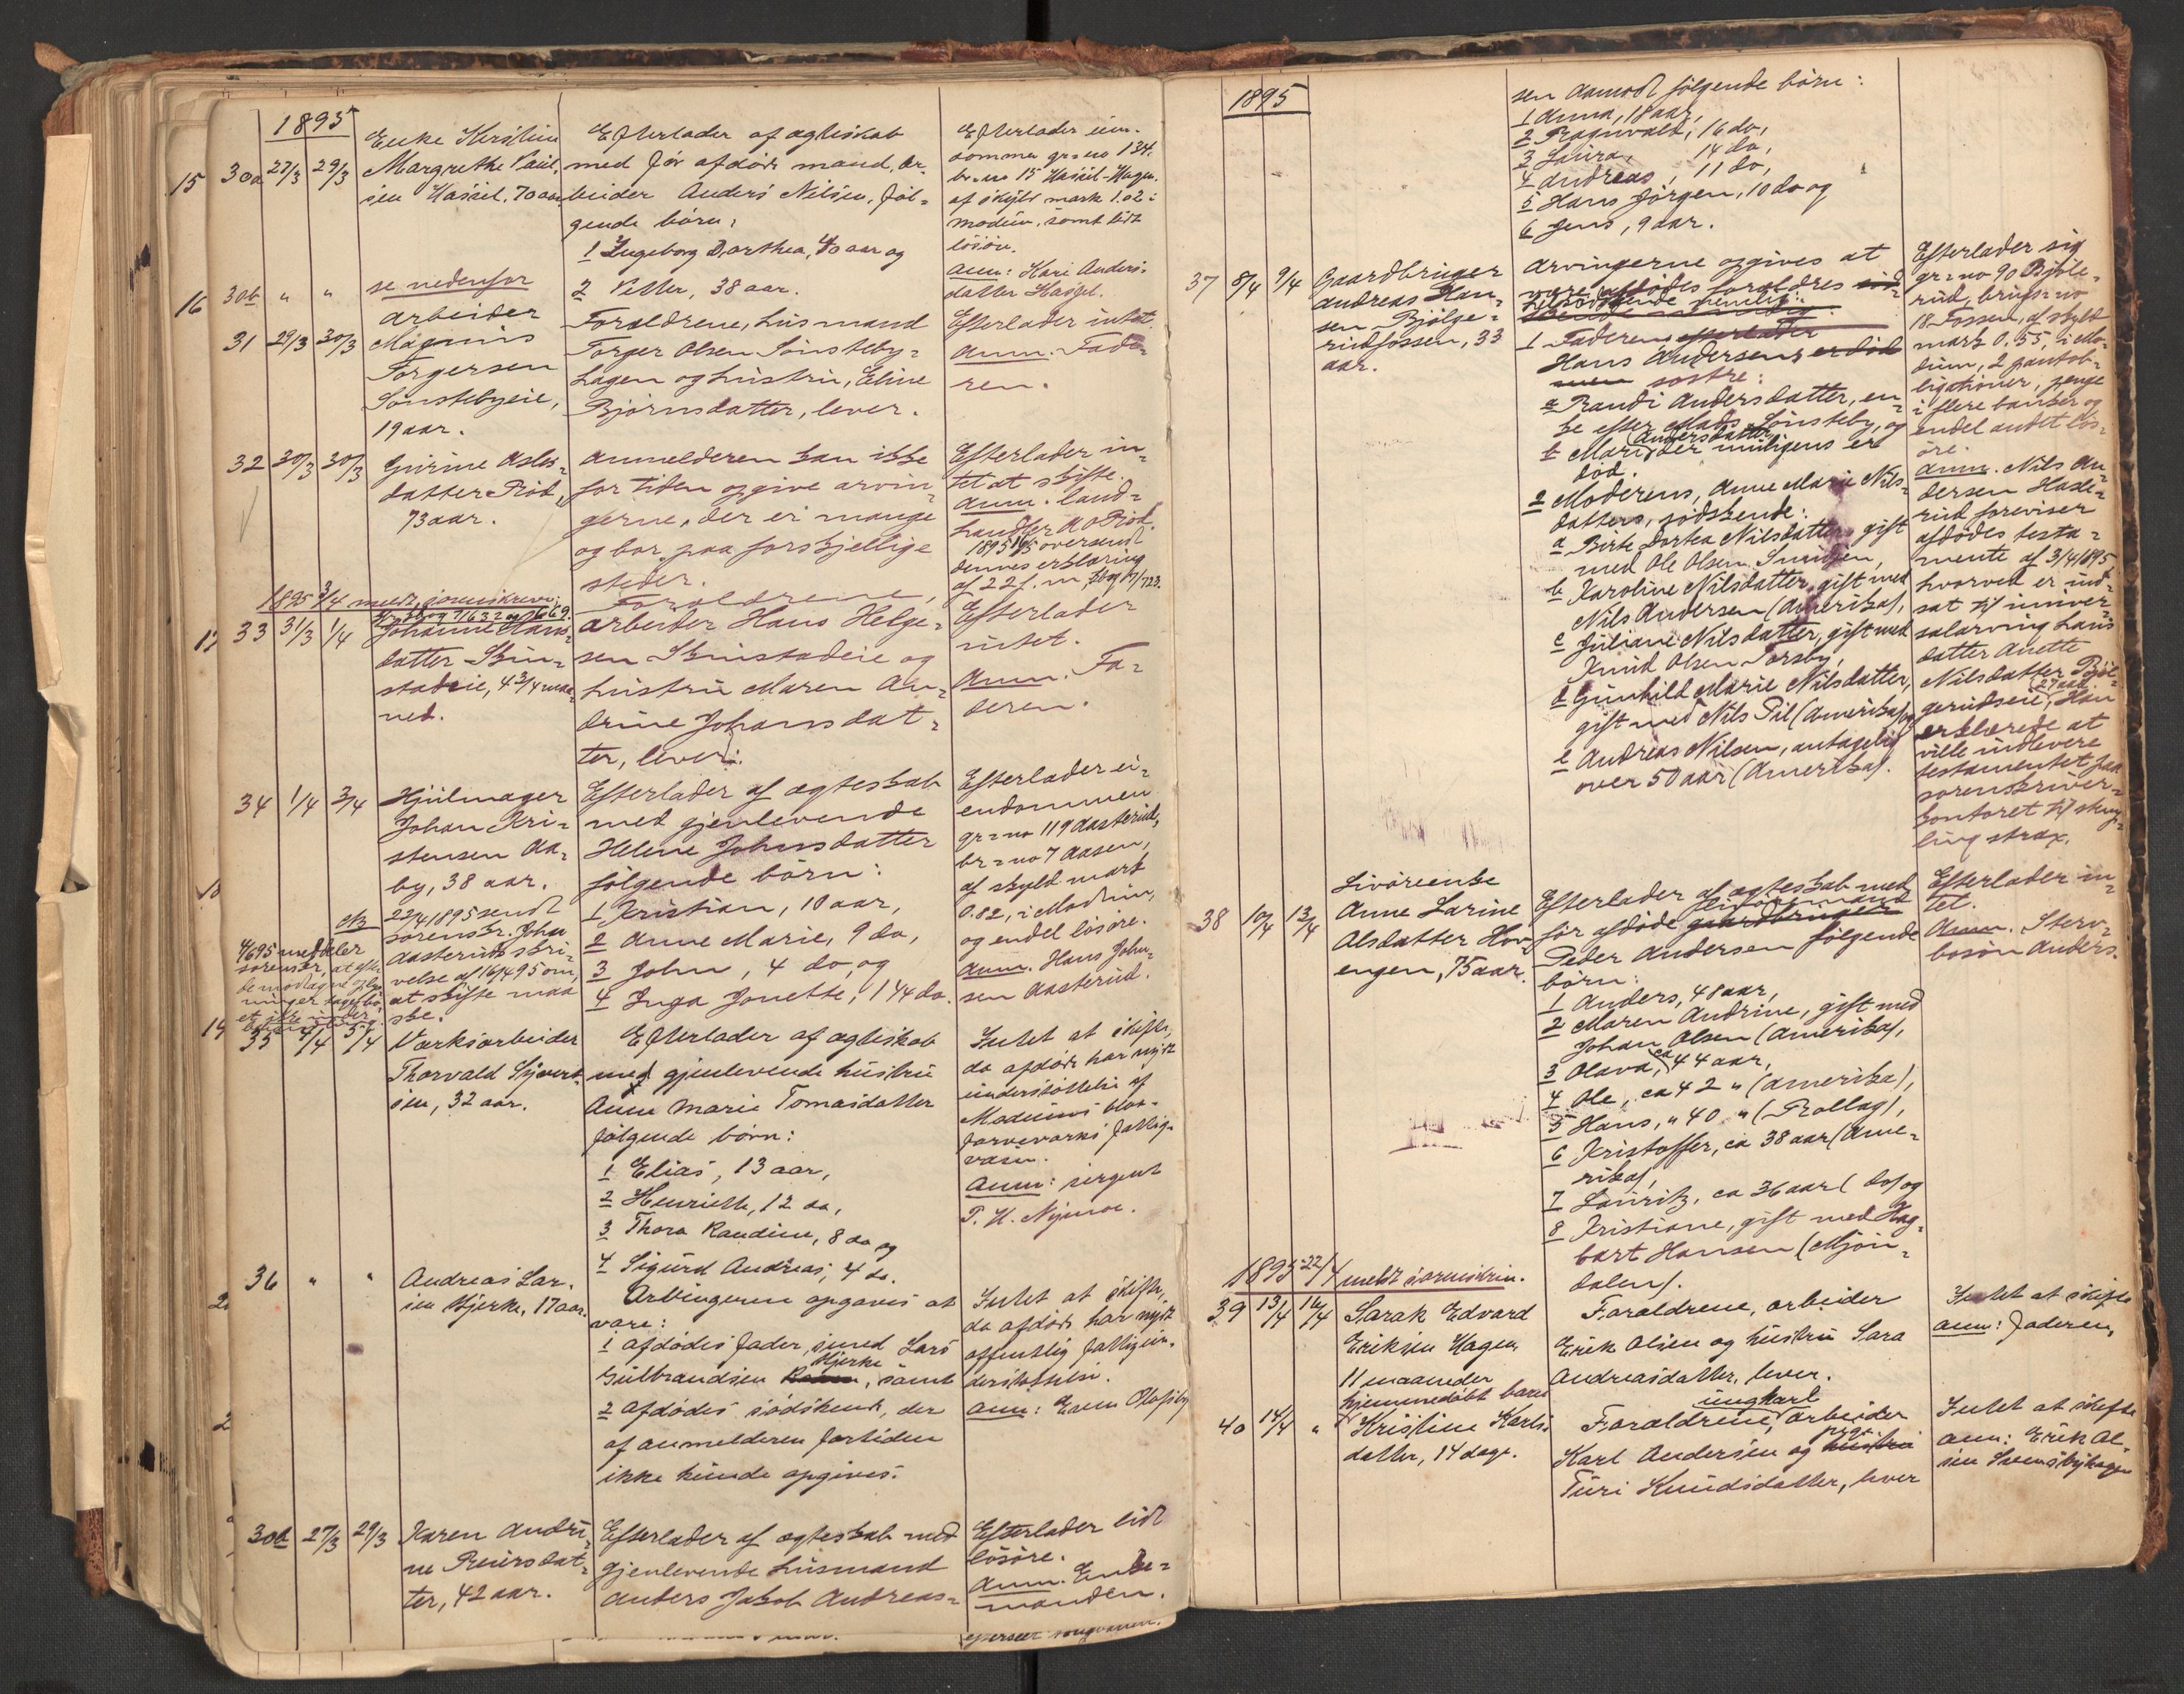 1895
15
30a 27/3 29/3
Enke Kirstine
Margrethe Paul-
sen Hassel, 70 aar
Efterlader af ægteskab
med før afdøde mand, ar-
beider Anders Nilsen, føl-
gende børn:
1 Ingeborg Dorthea, 40 aar og
2 Petter, 38 aar.
Efterlader eien-
dommen gr=no 134.
br.no 15 Hassel-Hagen.
af skyld mark 1.02 i
Modum, samt lidt
løsøre.
Anm: Kari Anders-
datter Hassel.
16
30b " "
se nedenfor
31 29/3 30/3
Arbeider
Magnus
Torgersen
Sønstebyeie,
19 aar.
Forældrene, husmand
Torger Olsen Sønsteby-
hagen og hustru, Eline
Bjørnsdatter, lever.
Efterlader intet.
Anm. Fade-
ren.
32 30/3 30/3
Gurine Asles-
datter Priod,
73 aar.
Anmelderen kan ikke
for tiden opgive arvin-
gerne, der er mange
og bor paa forskjellige
steder.
Efterlader in-
tet at skifte.
Anm. land-
handler
1895 oversendt
dennes erklæring
1895 3/4 meldt sorenskriver
17
33 31/3 1/4
Johanne Hans-
datter Skin-
stadeie, 4 3/4 maa-
ned.
Forældrene,
arbeider Hans Helge-
sen Skinstadeie og
hustru Maren An-
drine Johansdat-
ter, lever.
Efterlader
intet.
Anm. Fa-
deren.
34 1/4 3/4
Hjulmager
Johan Kri-
stensen Aa-
by, 38 aar.
Efterlader af ægteskab
med gjenlevende
Helene Johnsdatter
følgende børn:
1 Kristian, 10 aar,
2 Anne Marie, 9 do,
3 John, 4 do, og
4 Inga Jonette, 1 1/4 do.
Efterlader ei-
endommen
gr=no 119 Aasterud,
br=no 7 Aasen,
af skyld mark
0.82, i Modum,
og endel løsøre.
Anm. Hans John-
sen Aasterud.
18
NB
22/4 1895 sendt
sorenskr. John
Aasteruds skri-
velse af 16/4 95 om,
at skifte maa
ske.
4/6 95 meddeler
19
35 4/4 5/4
Værksarbeider
Thorvald Syvert-
sen, 32 aar.
Efterlader af ægteskab
med gjenlevende hustru
Anne Marie Tomasdatter
følgende børn:
1 Elias, 13 aar,
2 Henriette, 12 do,
3 Thora Randine, 8 do og
4 Sigurd Andreas, 4 do.
Intet at skifte,
da afdøde har nydt
understøttelse af
Modums blaa-
farveværks fattig-
væsen.
Anm: sergent
P. H. Nymoe.
36 " "
Andreas Lar-
sen Hjerke, 17 aar.
Arvingerne opgaves at
være:
1 afdødes fader, smed Lars
Gulbrandsen Hjerke, samt
2 afdødes sødskende, der
af anmelderen fortiden
ikke kunde opgives.
Intet at skifte,
da afdøde har nydt
offentlig fattigun-
derstøttelse.
Anm: Even Olafsby
30b 27/3 29/3
Karen Andri-
ne Reiersdat-
ter, 42 aar.
Efterlader af ægteskab med
gjenlevende husmand
Anders Jakob Andreas-
Efterlader lidt
løsøre.
Anm. Enke-
manden.
1895
sen Aamodt følgende børn:
1 Anna, 18 aar,
2 Ragnvald, 16 do,
3 Laura, 14 do,
4 Andreas, 11 do,
5 Hans Jørgen, 10 do og
6 Jens, 9 aar.
37 8/4 9/4
Gaardbruger
Andreas Han-
sen Bjølge-
rudfossen, 33
aar.
Arvingerne opgives at
være afdødes forældres
helsødskende nemlig:
1 Faderens efterlader
Hans Andersens er død
søstre:
a Randi Andersdatter, en-
ke efter Mads Sønsteby, og
b Mari Andersdatter der muligens er
død.
2 Moderens, Anne Marie Nils-
datters, sødskende:
a Birte Dorthea Nilsdatter, gift
med Ole Olsen
b Karoline Nilsdatter, gift med
Nils Andersen (Amerika),
c Juliane Nilsdatter, gift med
Knud Olsen Torsby,
d Gunhild Marie Nilsdatter,
gift med Nils Pil (Amerika) og
e Andreas Nilsen, antagelig
over 50 aar (Amerika).
Efterlader sig
gr=no 90 Bjøle-
rud, brugs=no
18 Fossen, af skyld
mark 0.55, i Mo-
dum, 2 pantob-
ligationer, penge
i flere banker og
endel andet løs-
øre.
Anm. Nils An-
dersen Hase-
rud foreviser
afdødes testa-
mente af 3/4 1895,
hvorved er ind-
sat til univer-
salarving hans
datter Anette
Nilsdatter Bjøl-
gerudseie, 27 aar. Han
erklærede at
ville indlevere
testamentet paa
sorenskriver-
kontoret til thing-
ling strax.
38 10/4 13/4
Livøreenke
Anne Larine
Olsdatter Hov-
engen, 75 aar.
Efterlader af ægteskab med
før afdøde gaardbruger
Peder Andersen følgende
børn:
1 Anders, 48 aar,
2 Maren Andrine, gift med
Johan Olsen (Amerika),
3 Olava, ca 44 aar,
4 Ole, ca 42 " (Amerika),
5 Hans, " 40 " (Trollag),
6 Kristoffer, ca 38 aar (Ame-
rika),
7 Lauritz, ca 36 aar (do) og
8 Kristiane, gift med Hag-
bart Hansen (Mjøn-
dalen).
Efterlader in-
tet.
Anm. Sterv-
bosøn Anders.
1895 22/4 meldt sorenskriv.
39 13/4 16/4
Sarak Edvard
Eriksen Hagen,
11 maaneder
Forældrene, arbeider
Erik Olsen og hustru Sara
Andreasdatter, lever.
Intet at skifte
Anm: Faderen,
40 14/4 "
hjemmedøbt barn
Kristine Karls-
datter, 14 dage.
Forældrene, ungkarl arbeider
Karl Andersen og pige hustru
Turi Knudsdatter, lever
Intet at skifte
Anm: Erik Ol-
sen Svensbyhagen